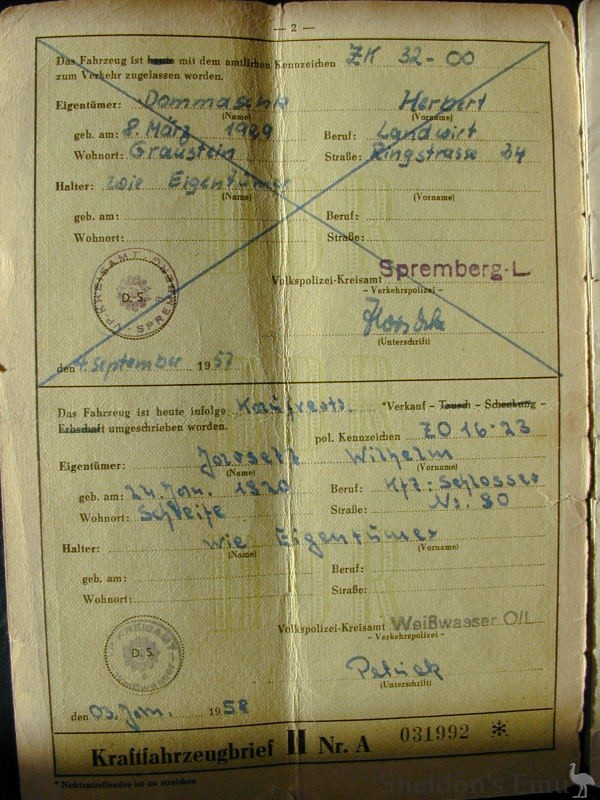 — 2 —
Das Fahrzeug ist heute mit dem amtlichen Kennzeichen ZK 32-00
zum Verkehr zugelassen worden.
Eigentümer: Dommaschk Herbert
(Name) (Vorname)
geb. am: 8. März 1929 Beruf: Landwirt
Wohnort: Graustein Straße: Ringstrasse 34
Halter: wie Eigentümer
(Name) (Vorname)
geb. am: Beruf:
Wohnort: Straße:
VP-KREISAMT SPREMBERG
D.S.
Volkspolizei-Kreisamt Spremberg-L
– Verkehrspolizei –
(Unterschrift)
den 4. September 1957
Das Fahrzeug ist heute infolge *Verkauf – Tausch – Schenkung –
Erbschaft umgeschrieben worden.
pol. Kennzeichen ZO 16-23
Eigentümer: Wilhelm
(Name) (Vorname)
geb. am: 24. Jan. 1920 Beruf: Kfz.-Schlosser
Wohnort: Schleife Straße: Nr. 80
Halter: wie Eigentümer
(Name) (Vorname)
geb. am: Beruf:
Wohnort: Straße:
VP-KREISAMT Weißwasser
D.S.
Volkspolizei-Kreisamt Weißwasser O/L
– Verkehrspolizei –
(Unterschrift)
den 03. Jan. 1958
Kraftfahrzeugbrief II Nr. A 031992 *
* Nichtzutreffendes ist zu streichen
Sheldon's Emu